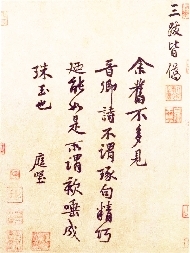 三跋皆偽
余舊不多見
晉卿詩不謂琢句精巧
廼能如是所謂欬唾成
珠玉也
庭堅